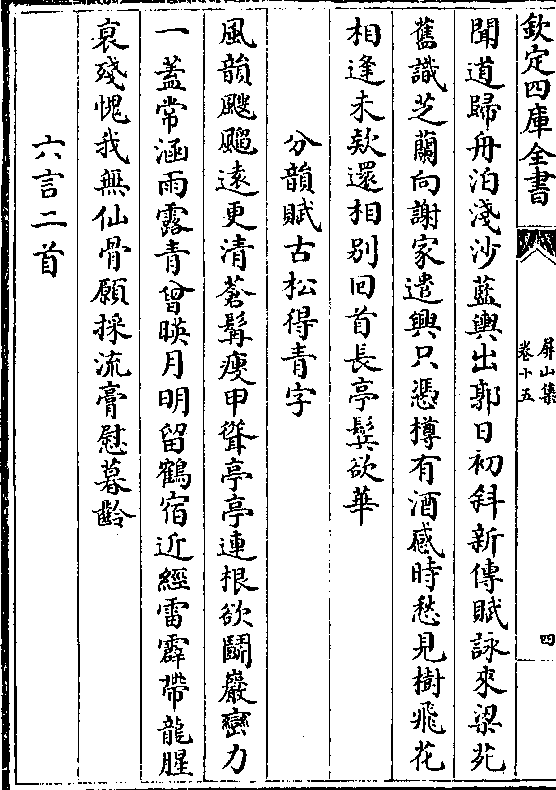 欽定四庫全書
屏山集
卷十五
四
聞道歸舟泊淺沙藍輿出郭日初斜新傳賦詠來梁苑
舊識芝蘭向謝家遣興只憑樽有酒感時愁見樹飛花
相逢未欵還相别回首長亭鬂欲華
分韻賦古松得青字
風韻颼飀遠更清蒼髯瘦甲聳亭亭連根欲鬭巖巒力
一蓋常涵雨露青曾暎月明留鶴宿近經雷霹帶龍腥
衰殘愧我無仙骨願採流膏慰暮齡
六言二首